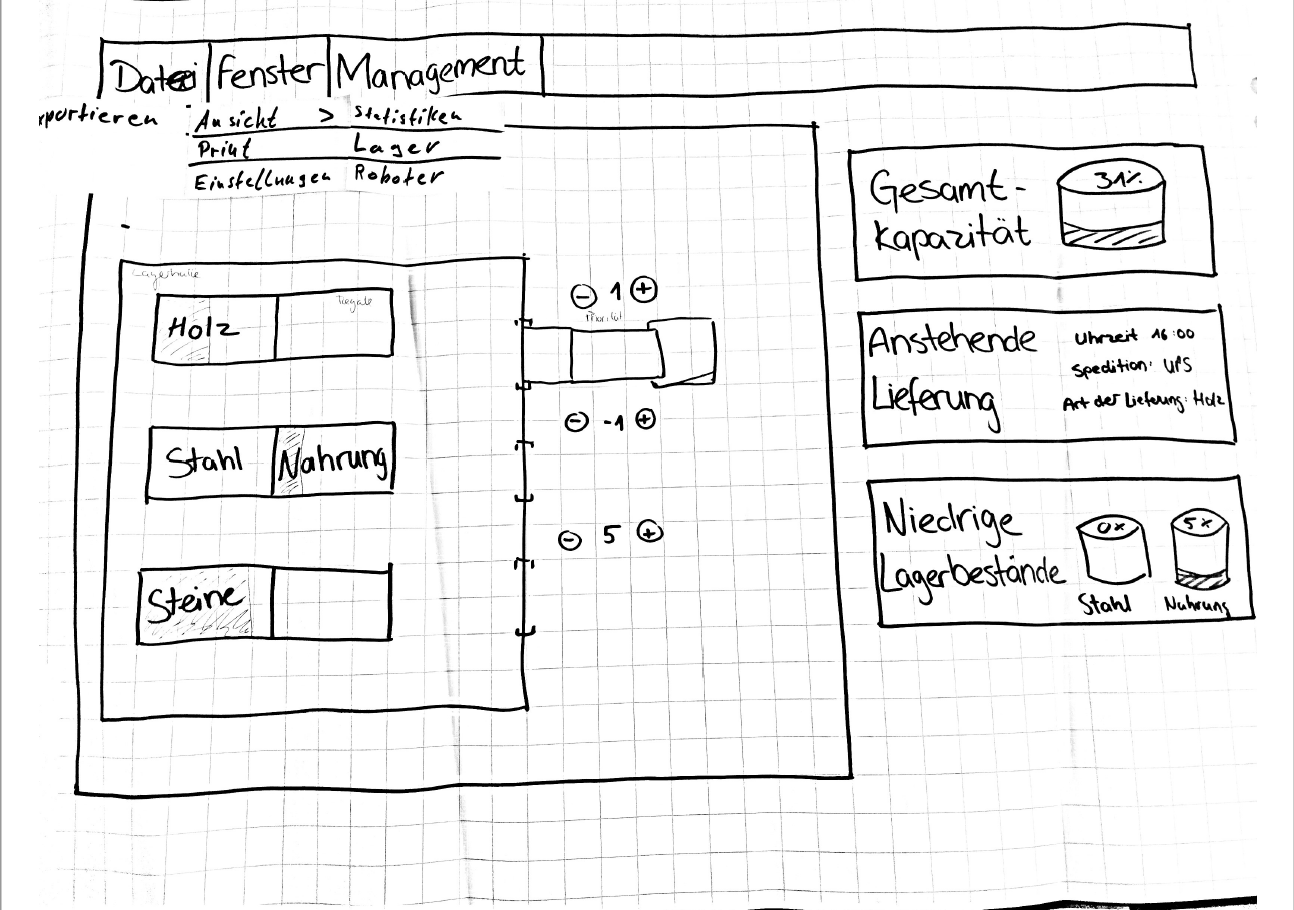 Datei Fenster Management
xportieren
Ansicht > Statistiken
Print Lager
Einstellungen Roboter
Lagerhalle
Regale
Holz
Stahl Nahrung
Steine
- 1 +
Priorität
- -1 +
- 5 +
Gesamt-
kapazität
31%
Anstehende
Lieferung
Uhrzeit 16:00
Spedition: UPS
Art der Lieferung: Holz
Niedrige
Lagerbestände
0x
Stahl
5x
Nahrung